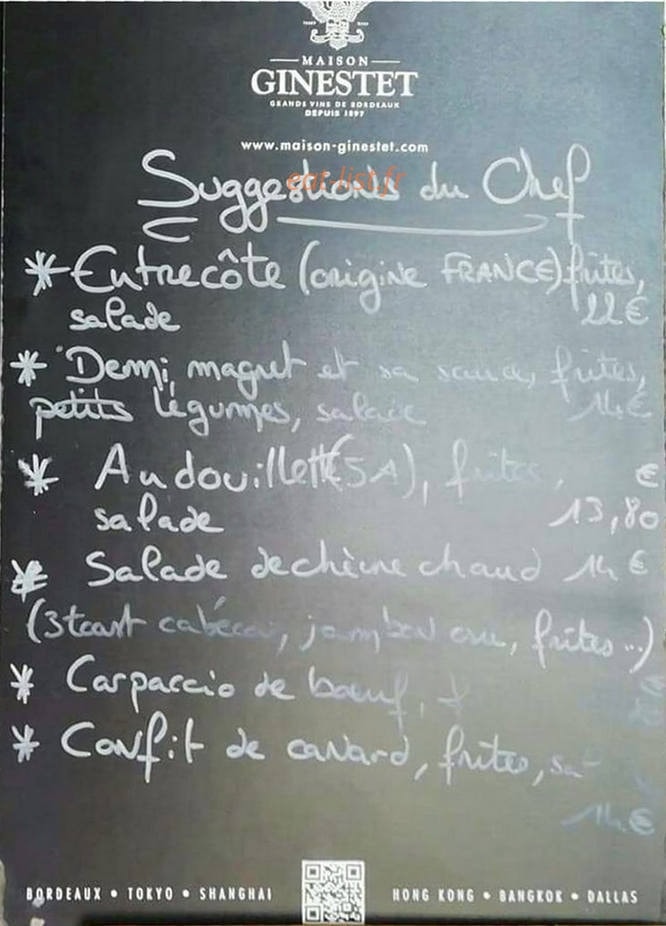 MAISON
GINESTET
GRANDS VINS DE BORDEAUX
DEPUIS 1897
www.maison-ginestet.com
eat-list.fr
Suggestions du Chef
* Entrecôte (origine FRANCE) frites,
salade 22€
* Demi magret et sa sauce, frites,
petits légumes, salade 14€
* Andouillette (5A), frites, €
salade 13,80
* Salade de chèvre chaud 14 €
(3 toast cabécou, jambon cru, frites...)
* Carpaccio de boeuf, f
* Confit de canard, frites, sa
14€
BORDEAUX • TOKYO • SHANGHAI HONG KONG • BANGKOK • DALLAS